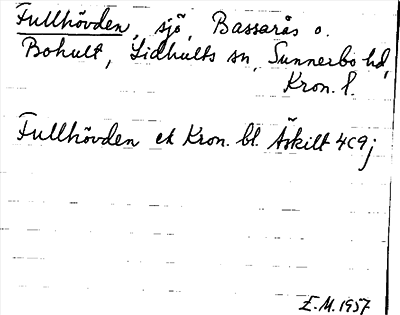 Fullhövden, sjö, Bassarås o.
Bohult, Lidhults sn, Sunnerbo hd,
Kron. l.
Fullhövden ek Kron. bl. Askilt 4c9j
E.M. 1957